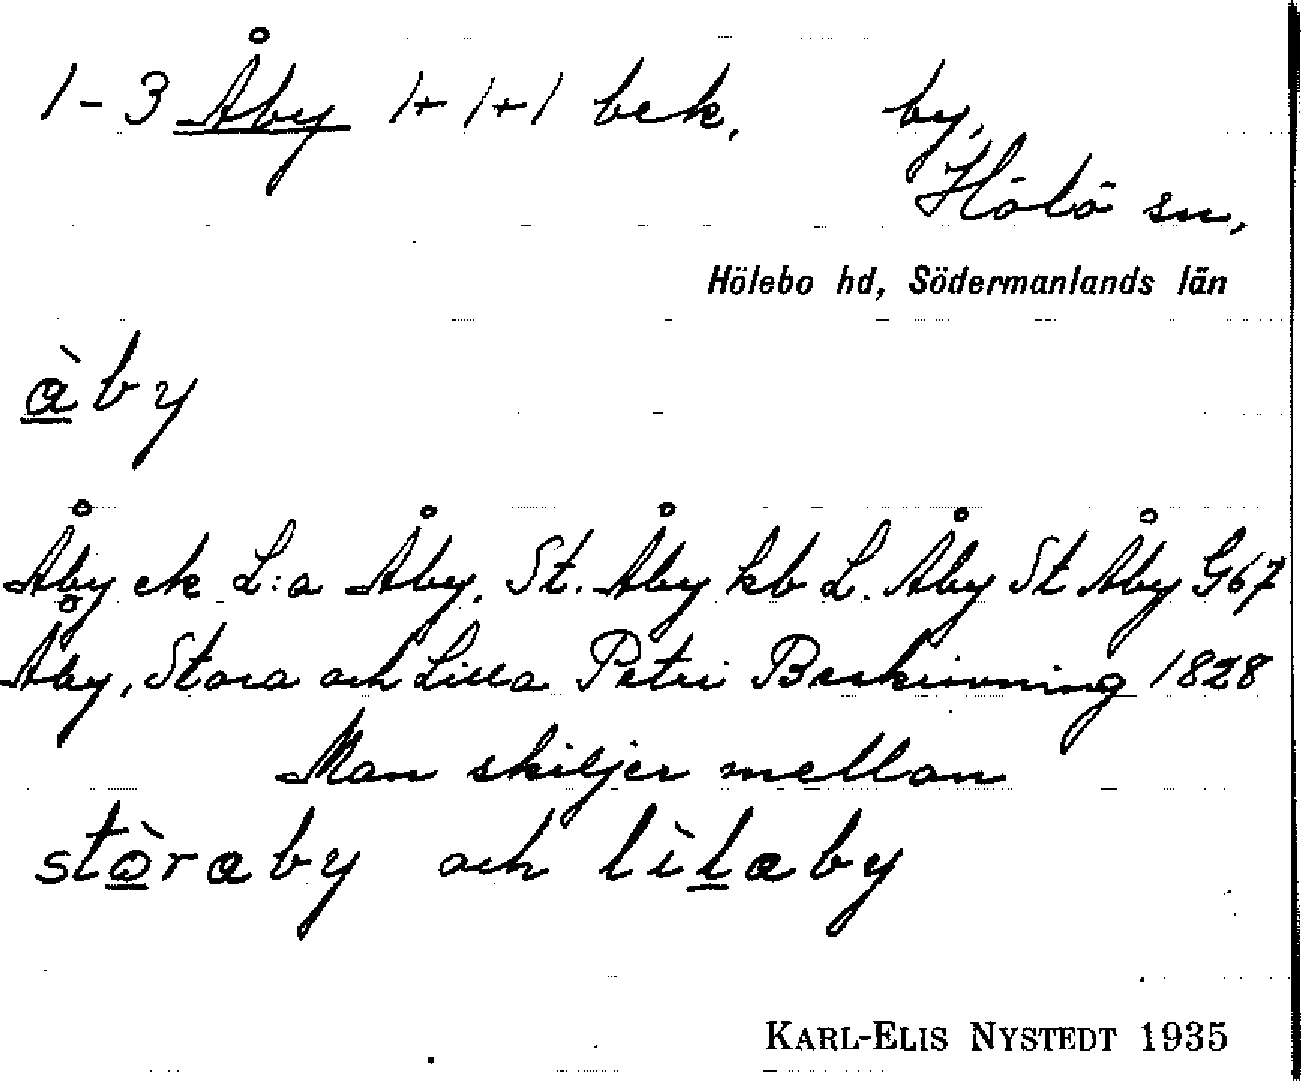 1-3 Åby 1+1+1 bek. by,
Hölö sn,
Hölebo hd, Södermanlands län
ὰby
Åby ek L:a Åby, St. Åby kb L. Åby St Åby G67
Åby, Stora och Lilla Petri Beskrivning 1828
Man skiljer mellan
stòraby och lìlaby
KARL-ELIS NYSTEDT 1935